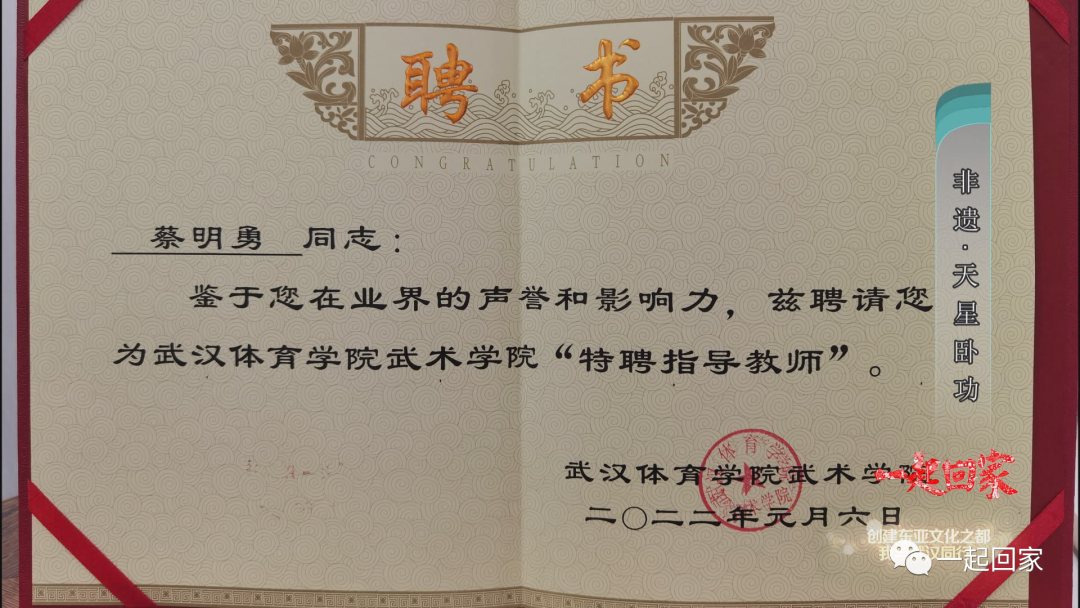 聘书
CONGRATULATION
蔡明勇 同志：
鉴于您在业界的声誉和影响力，兹聘请您
为武汉体育学院武术学院“特聘指导教师”。
武汉体育学院武术学院
二〇二二年元月六日
非遗·天星卧功
一起回家
创建东亚文化之都
一起回家